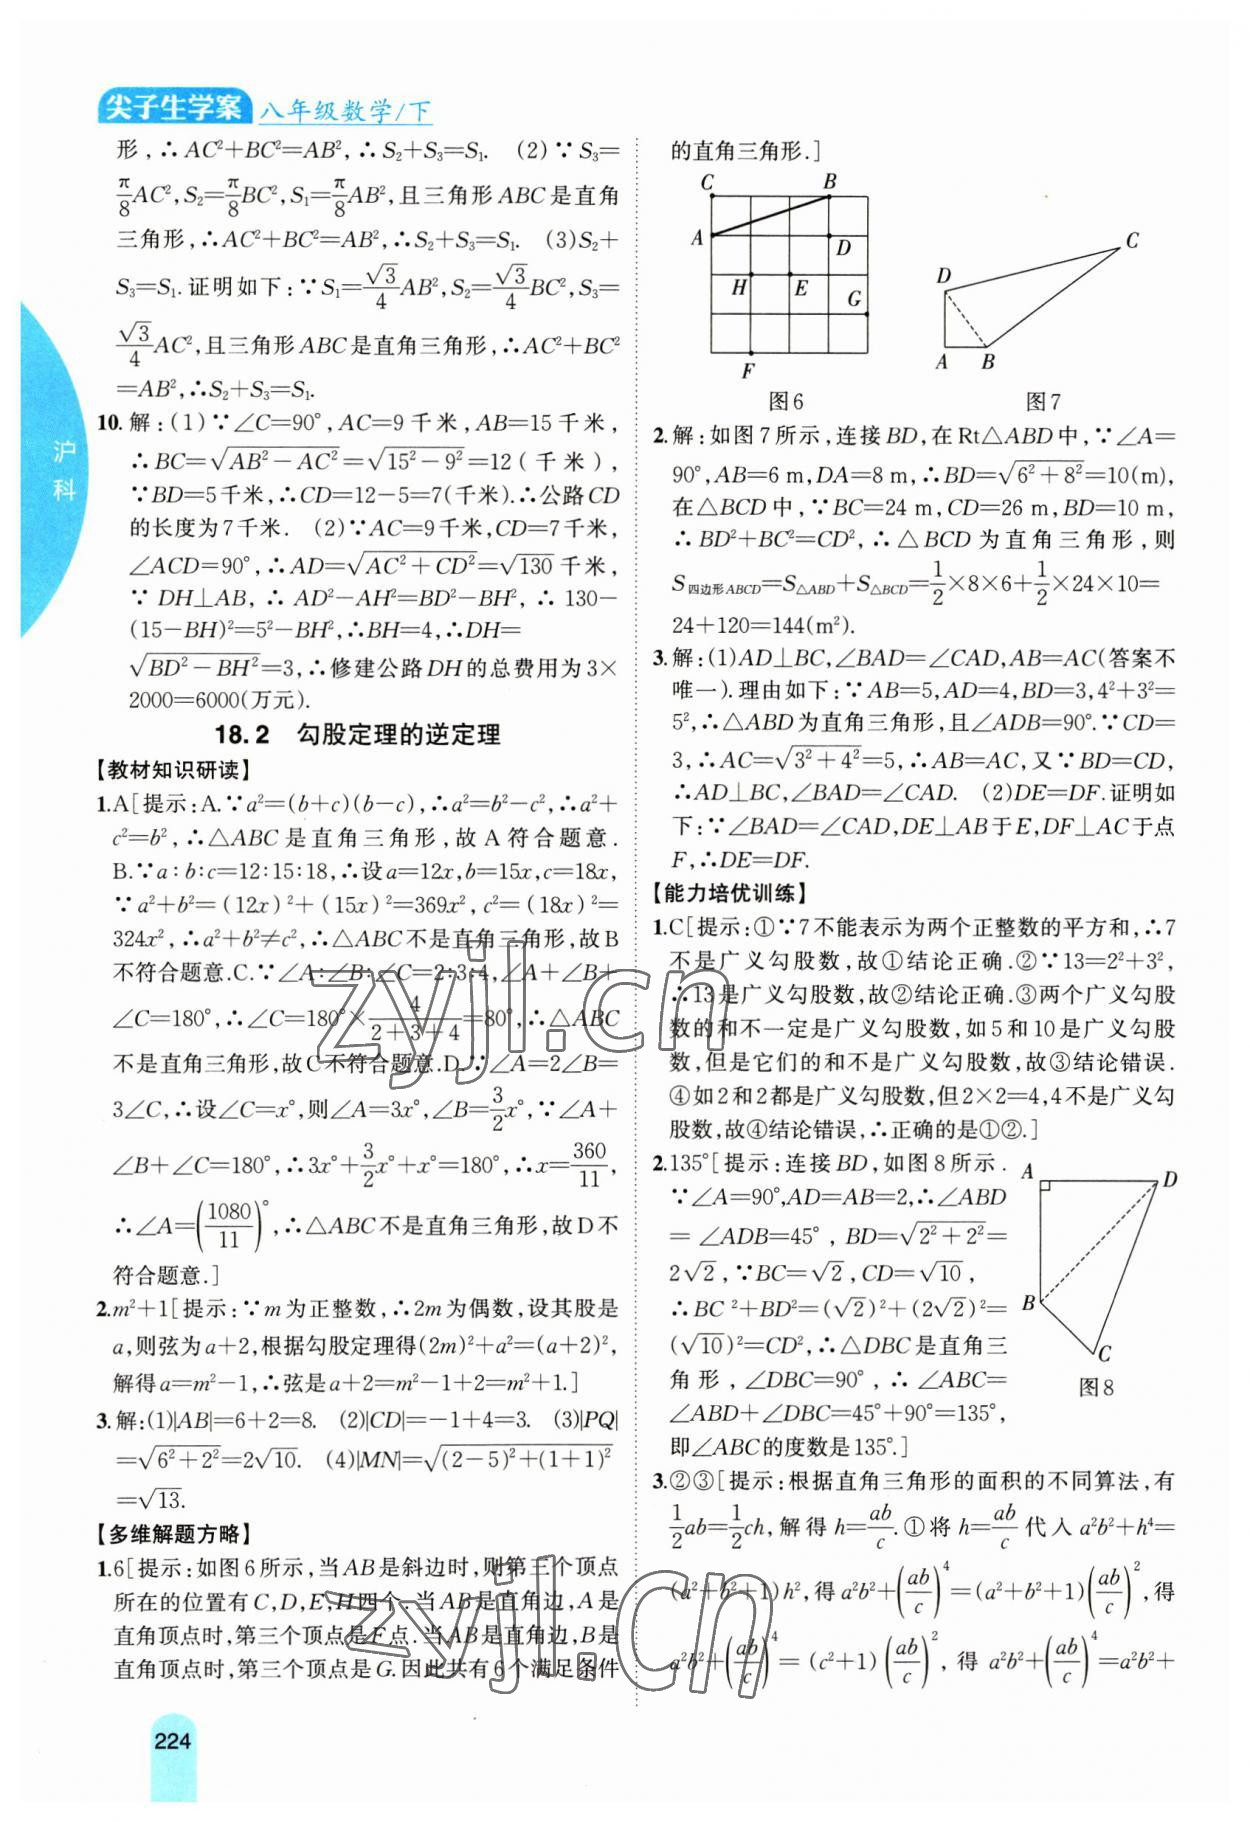 尖子生学案 八年级数学/下
沪科
形,∴AC²+BC²=AB²,∴S₂+S₃=S₁. (2)∵S₃=
π/8AC²,S₂=π/8BC²,S₁=π/8AB²,且三角形ABC是直角
三角形,∴AC²+BC²=AB²,∴S₂+S₃=S₁. (3)S₂+
S₃=S₁.证明如下:∵S₁=√3/4AB²,S₂=√3/4BC²,S₃=
√3/4AC²,且三角形ABC是直角三角形,∴AC²+BC²
=AB²,∴S₂+S₃=S₁.
10.解:(1)∵∠C=90°,AC=9千米,AB=15千米,
∴BC=√(AB²-AC²)=√(15²-9²)=12(千米),
∵BD=5千米,∴CD=12-5=7(千米).∴公路CD
的长度为7千米. (2)∵AC=9千米,CD=7千米,
∠ACD=90°,∴AD=√(AC²+CD²)=√130千米,
∵DH⊥AB,∴AD²-AH²=BD²-BH²,∴130-
(15-BH)²=5²-BH²,∴BH=4,∴DH=
√(BD²-BH²)=3,∴修建公路DH的总费用为3×
2000=6000(万元).
18.2 勾股定理的逆定理
【教材知识研读】
1.A[提示:A.∵a²=(b+c)(b-c),∴a²=b²-c²,∴a²+
c²=b²,∴△ABC是直角三角形,故A符合题意.
B.∵a:b:c=12:15:18,∴设a=12x,b=15x,c=18x,
∵a²+b²=(12x)²+(15x)²=369x²,c²=(18x)²=
324x²,∴a²+b²≠c²,∴△ABC不是直角三角形,故B
不符合题意.C.∵∠A:∠B:∠C=2:3:4,∠A+∠B+
∠C=180°,∴∠C=180°×4/(2+3+4)=80°,∴△ABC
不是直角三角形,故C不符合题意.D.∵∠A=2∠B=
3∠C,∴设∠C=x°,则∠A=3x°,∠B=3/2x°,∵∠A+
∠B+∠C=180°,∴3x°+3/2x°+x°=180°,∴x=360/11,
∴∠A=(1080/11)°,∴△ABC不是直角三角形,故D不
符合题意.]
2.m²+1[提示:∵m为正整数,∴2m为偶数,设其股是
a,则弦为a+2,根据勾股定理得(2m)²+a²=(a+2)²,
解得a=m²-1,∴弦是a+2=m²-1+2=m²+1.]
3.解:(1)|AB|=6+2=8. (2)|CD|=-1+4=3. (3)|PQ|
=√(6²+2²)=2√10. (4)|MN|=√((2-5)²+(1+1)²)
=√13.
【多维解题方略】
1.6[提示:如图6所示,当AB是斜边时,则第三个顶点
所在的位置有C,D,E,H四个.当AB是直角边,A是
直角顶点时,第三个顶点是F点.当AB是直角边,B是
直角顶点时,第三个顶点是G.因此共有6个满足条件
224
的直角三角形.]
C B
A D
H E G
F
图6
C
D
A B
图7
2.解:如图7所示,连接BD,在Rt△ABD中,∵∠A=
90°,AB=6 m,DA=8 m,∴BD=√(6²+8²)=10(m),
在△BCD中,∵BC=24 m,CD=26 m,BD=10 m,
∴BD²+BC²=CD²,∴△BCD为直角三角形,则
S四边形ABCD=S△ABD+S△BCD=1/2×8×6+1/2×24×10=
24+120=144(m²).
3.解:(1)AD⊥BC,∠BAD=∠CAD,AB=AC(答案不
唯一).理由如下:∵AB=5,AD=4,BD=3,4²+3²=
5²,∴△ABD为直角三角形,且∠ADB=90°.∵CD=
3,∴AC=√(3²+4²)=5,∴AB=AC,又∵BD=CD,
∴AD⊥BC,∠BAD=∠CAD. (2)DE=DF.证明如
下:∵∠BAD=∠CAD,DE⊥AB于E,DF⊥AC于点
F,∴DE=DF.
【能力培优训练】
1.C[提示:①∵7不能表示为两个正整数的平方和,∴7
不是广义勾股数,故①结论正确.②∵13=2²+3²,
∴13是广义勾股数,故②结论正确.③两个广义勾股
数的和不一定是广义勾股数,如5和10是广义勾股
数,但是它们的和不是广义勾股数,故③结论错误.
④如2和2都是广义勾股数,但2×2=4,4不是广义勾
股数,故④结论错误,∴正确的是①②.]
2.135°[提示:连接BD,如图8所示.
∵∠A=90°,AD=AB=2,∴∠ABD
=∠ADB=45°,BD=√(2²+2²)=
2√2,∵BC=√2,CD=√10,
∴BC²+BD²=(√2)²+(2√2)²=
(√10)²=CD²,∴△DBC是直角三
角形,∠DBC=90°,∴∠ABC=
∠ABD+∠DBC=45°+90°=135°,
即∠ABC的度数是135°.]
A D
B
C
图8
3.②③[提示:根据直角三角形的面积的不同算法,有
1/2ab=1/2ch,解得h=ab/c.①将h=ab/c代入a²b²+h⁴=
(a²+b²+1)h²,得a²b²+(ab/c)⁴=(a²+b²+1)(ab/c)²,得
a²b²+(ab/c)⁴=(c²+1)(ab/c)²,得a²b²+(ab/c)⁴=a²b²+
zyjl.cn
zyjl.cn